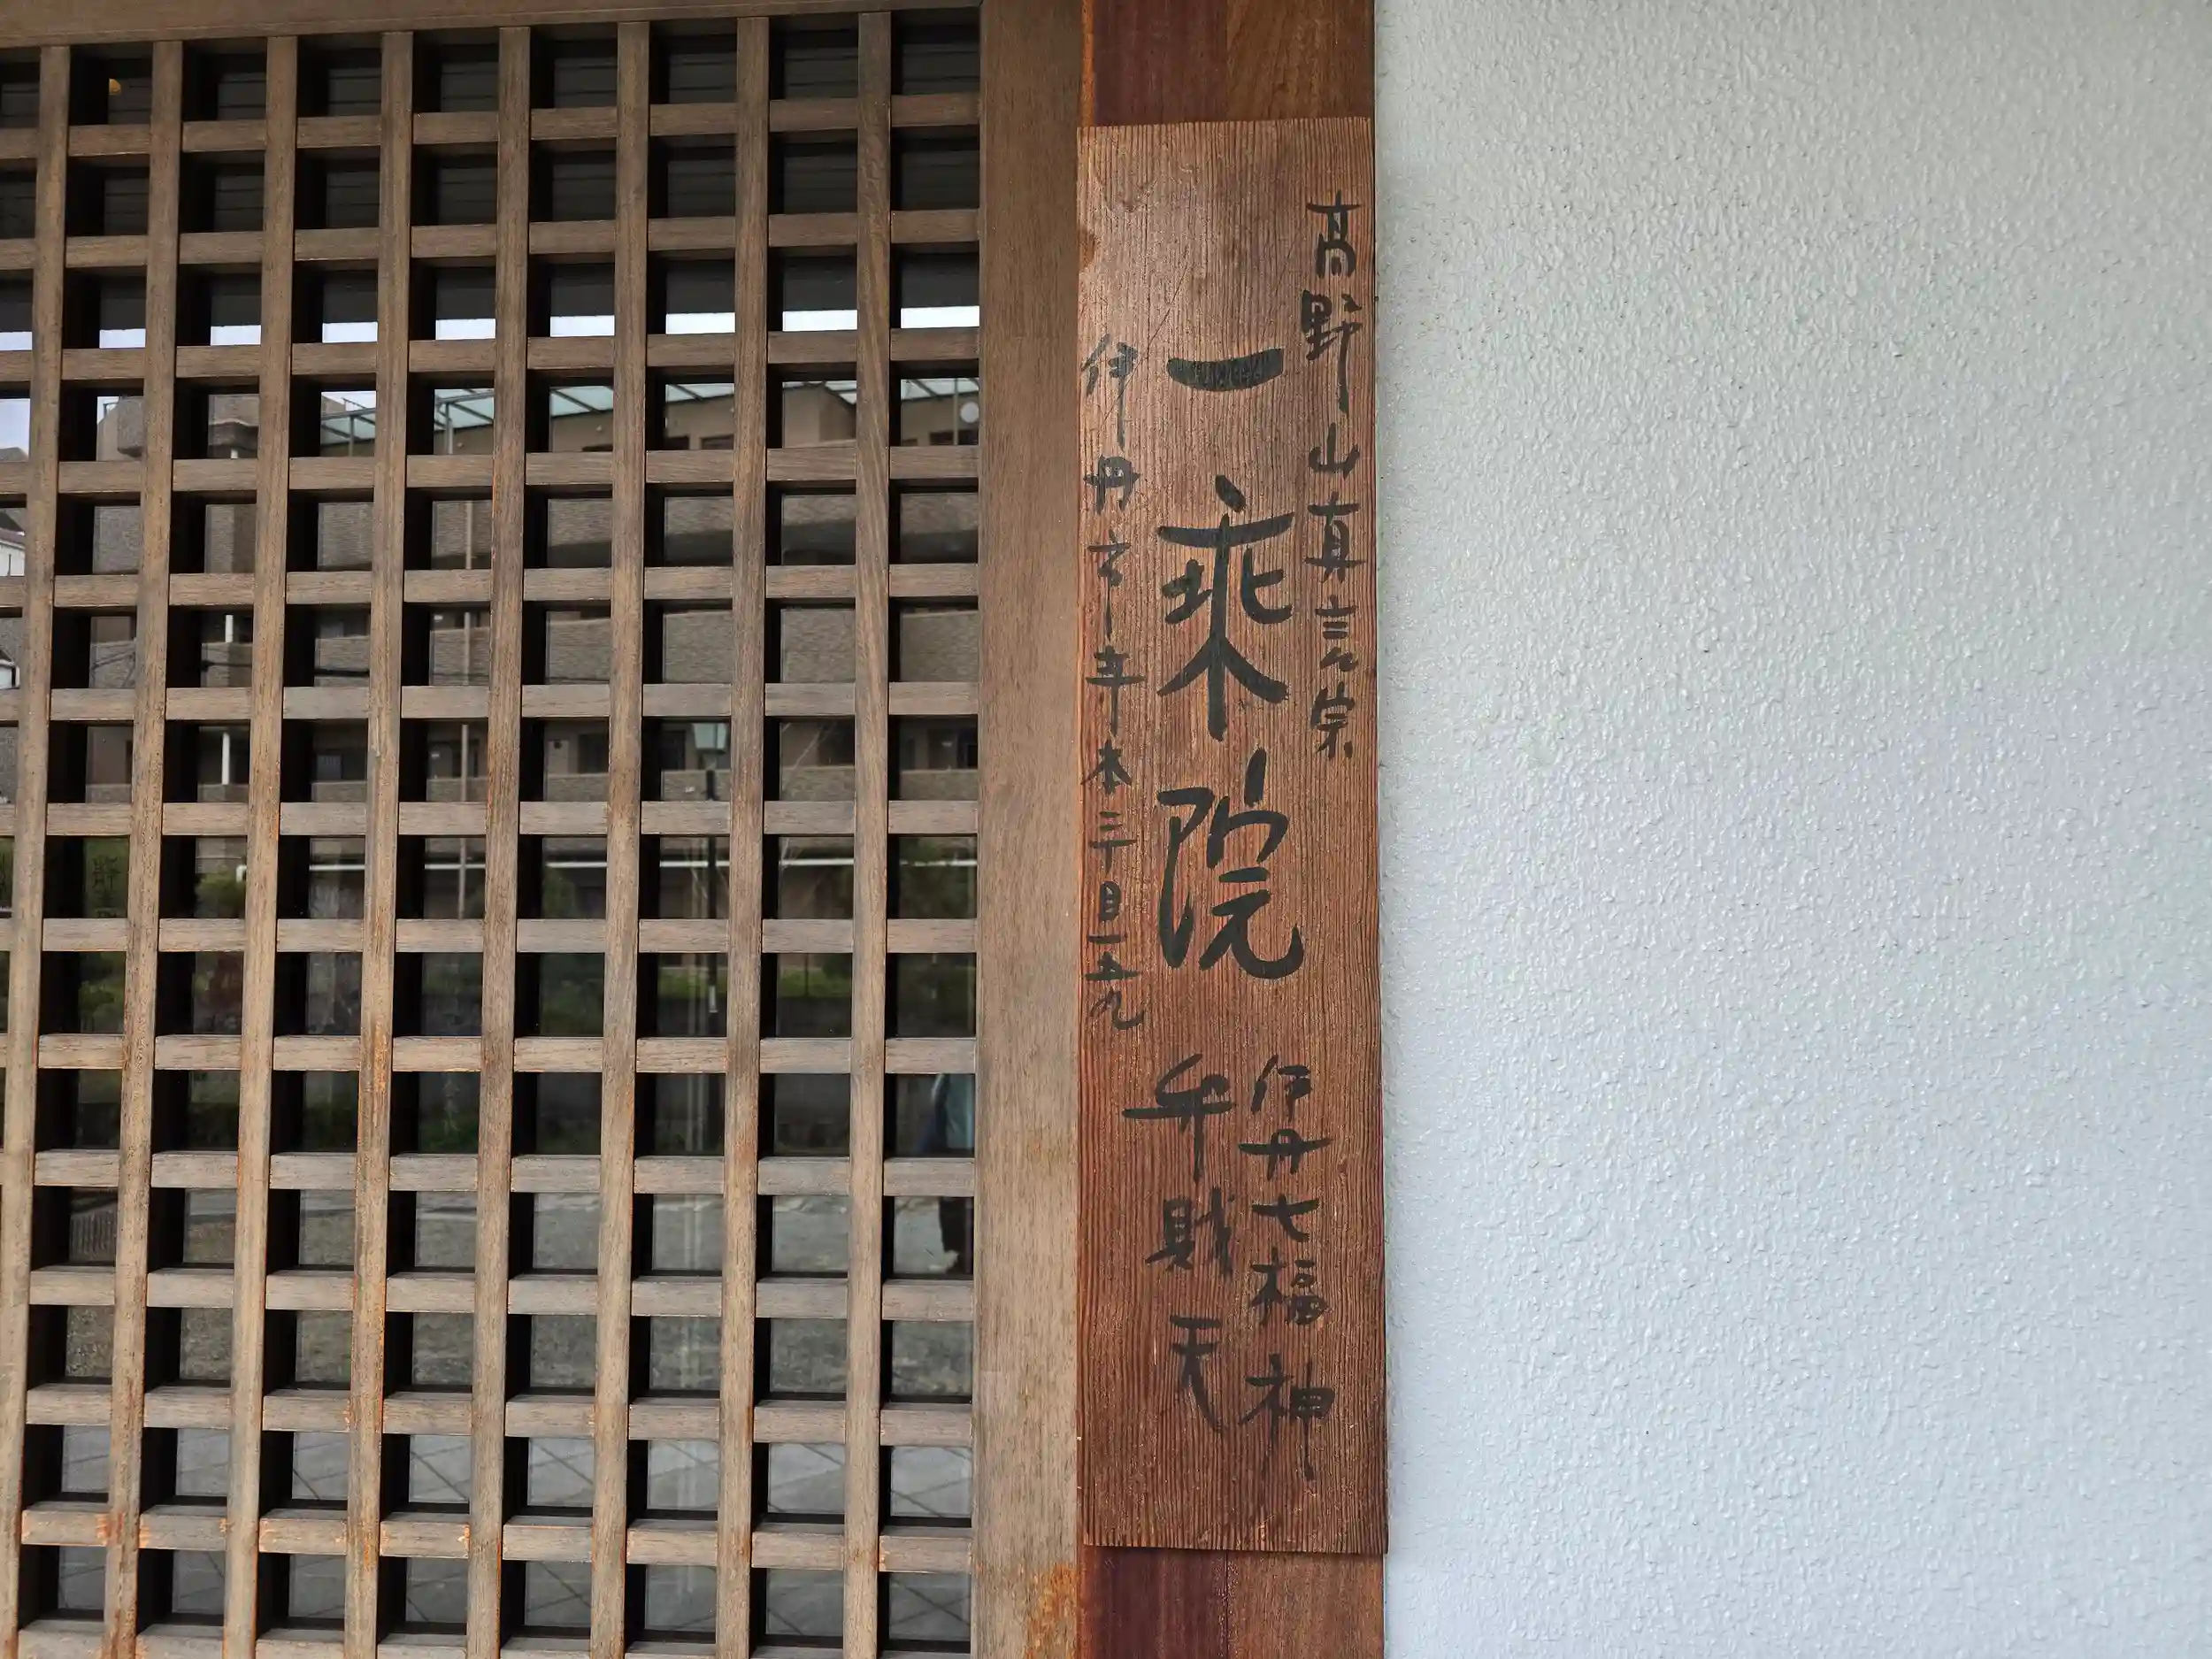 高野山真言宗
一乗院
伊丹市寺本三丁目一五九
伊丹七福神
弁財天